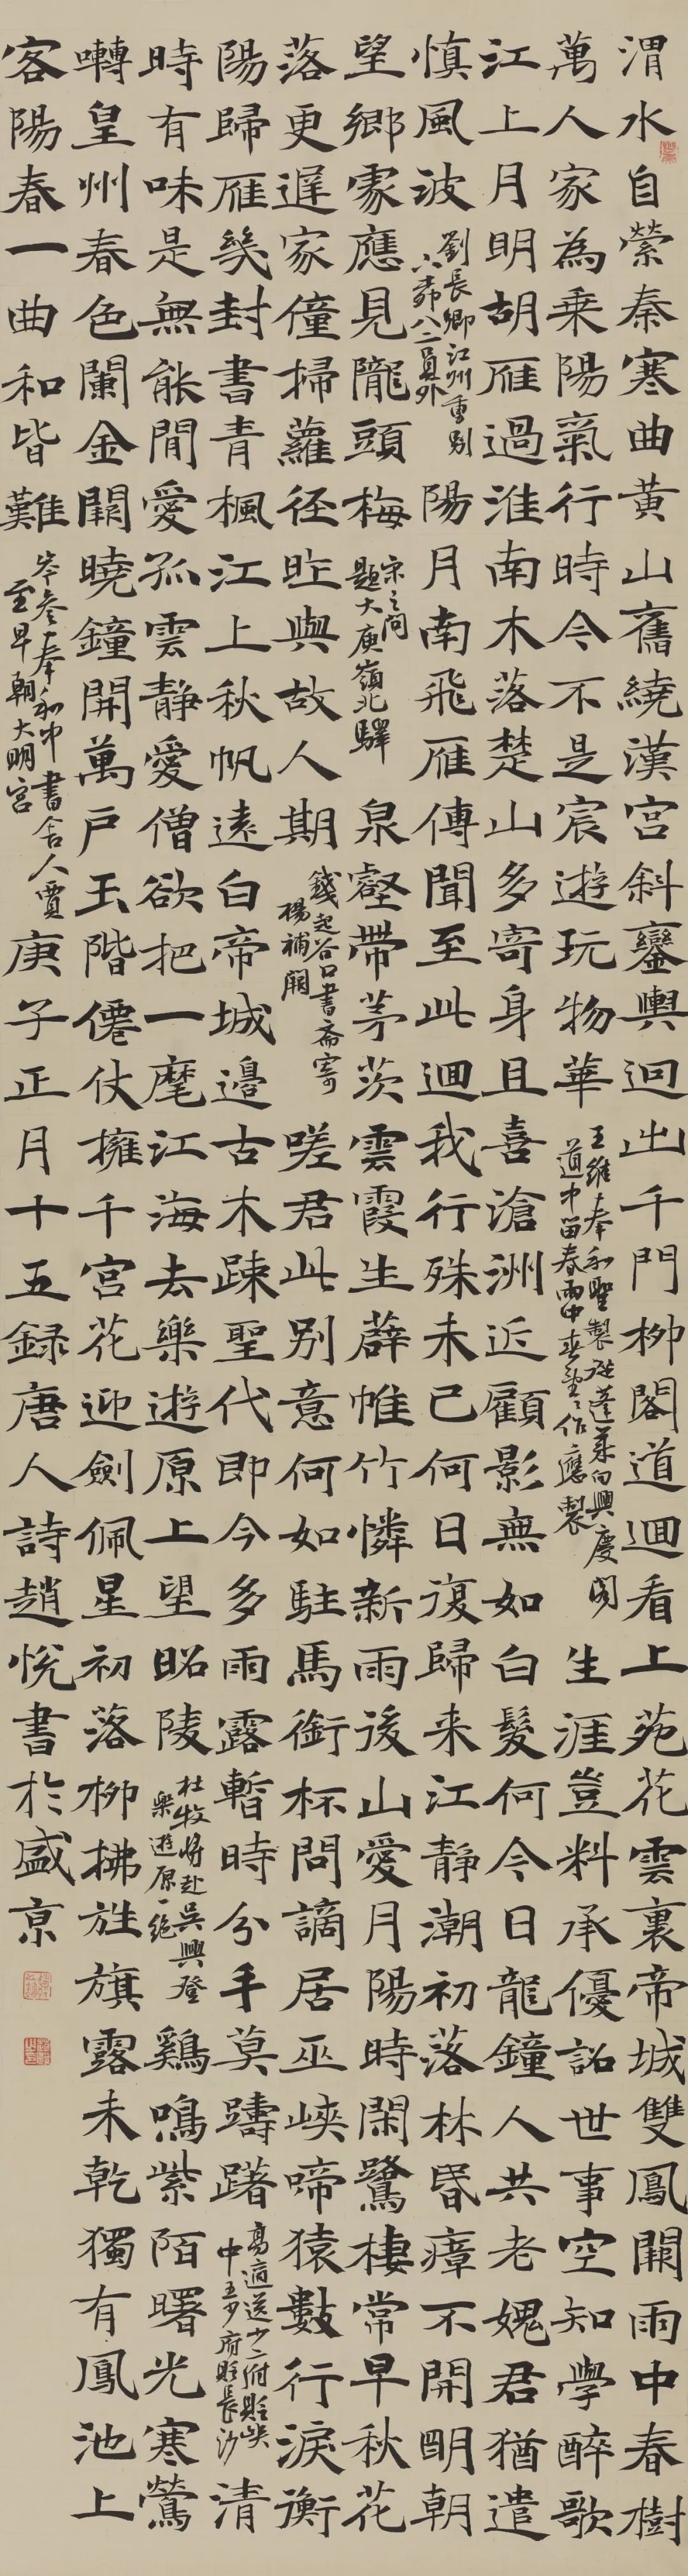 渭水自縈秦寒曲黃山舊繞漢宮斜鑾輿迥出千門柳閣道迴看上苑花雲裏帝城雙鳳闕雨中春樹
萬人家為乘陽氣行時令不是宸遊玩物華
王維奉和聖製從蓬萊向興慶閣
道中留春雨中春望之作應製
生涯豈料承優詔世事空知學醉歌
江上月明胡雁過淮南木落楚山多寄身且喜滄洲近顧影無如白髮何今日龍鐘人共老媿君猶遣
慎風波
劉長卿江州重別
六柳八二員外
陽月南飛雁傳聞至此迴我行殊未已何日復歸来江靜潮初落林昏瘴不開明朝
望鄉處應見隴頭梅
宋之问
題大庾嶺北驛
泉壑帶茅茨雲霞生薜帷竹憐新雨後山愛月陽時閑鷺棲常早秋花
落更遲家僮掃蘿径昨與故人期
錢起谷口書斋寄
楊補闕
嗟君此别意何如駐馬銜杯問謫居巫峽啼猿數行淚衡
陽歸雁幾封書青楓江上秋帆遠白帝城邊古木疎聖代即今多雨露暫時分手莫躊躇
高適送少二府貶峽
中王少府貶長沙
清
時有味是無能閒愛孤雲静愛僧欲把一麾江海去樂遊原上望昭陵
杜牧將赴吳興登
樂遊原一絕
鷄鳴紫陌曙光寒鶯
囀皇州春色闌金闕曉鐘開萬戶玉階僊仗擁千宮花迎劍佩星初落柳拂旌旗露未乾獨有鳳池上
客陽春一曲和皆難
岑參奉和中書舍人賈
至早朝大明宮
庚子正月十五録唐人詩趙悦書於盛京